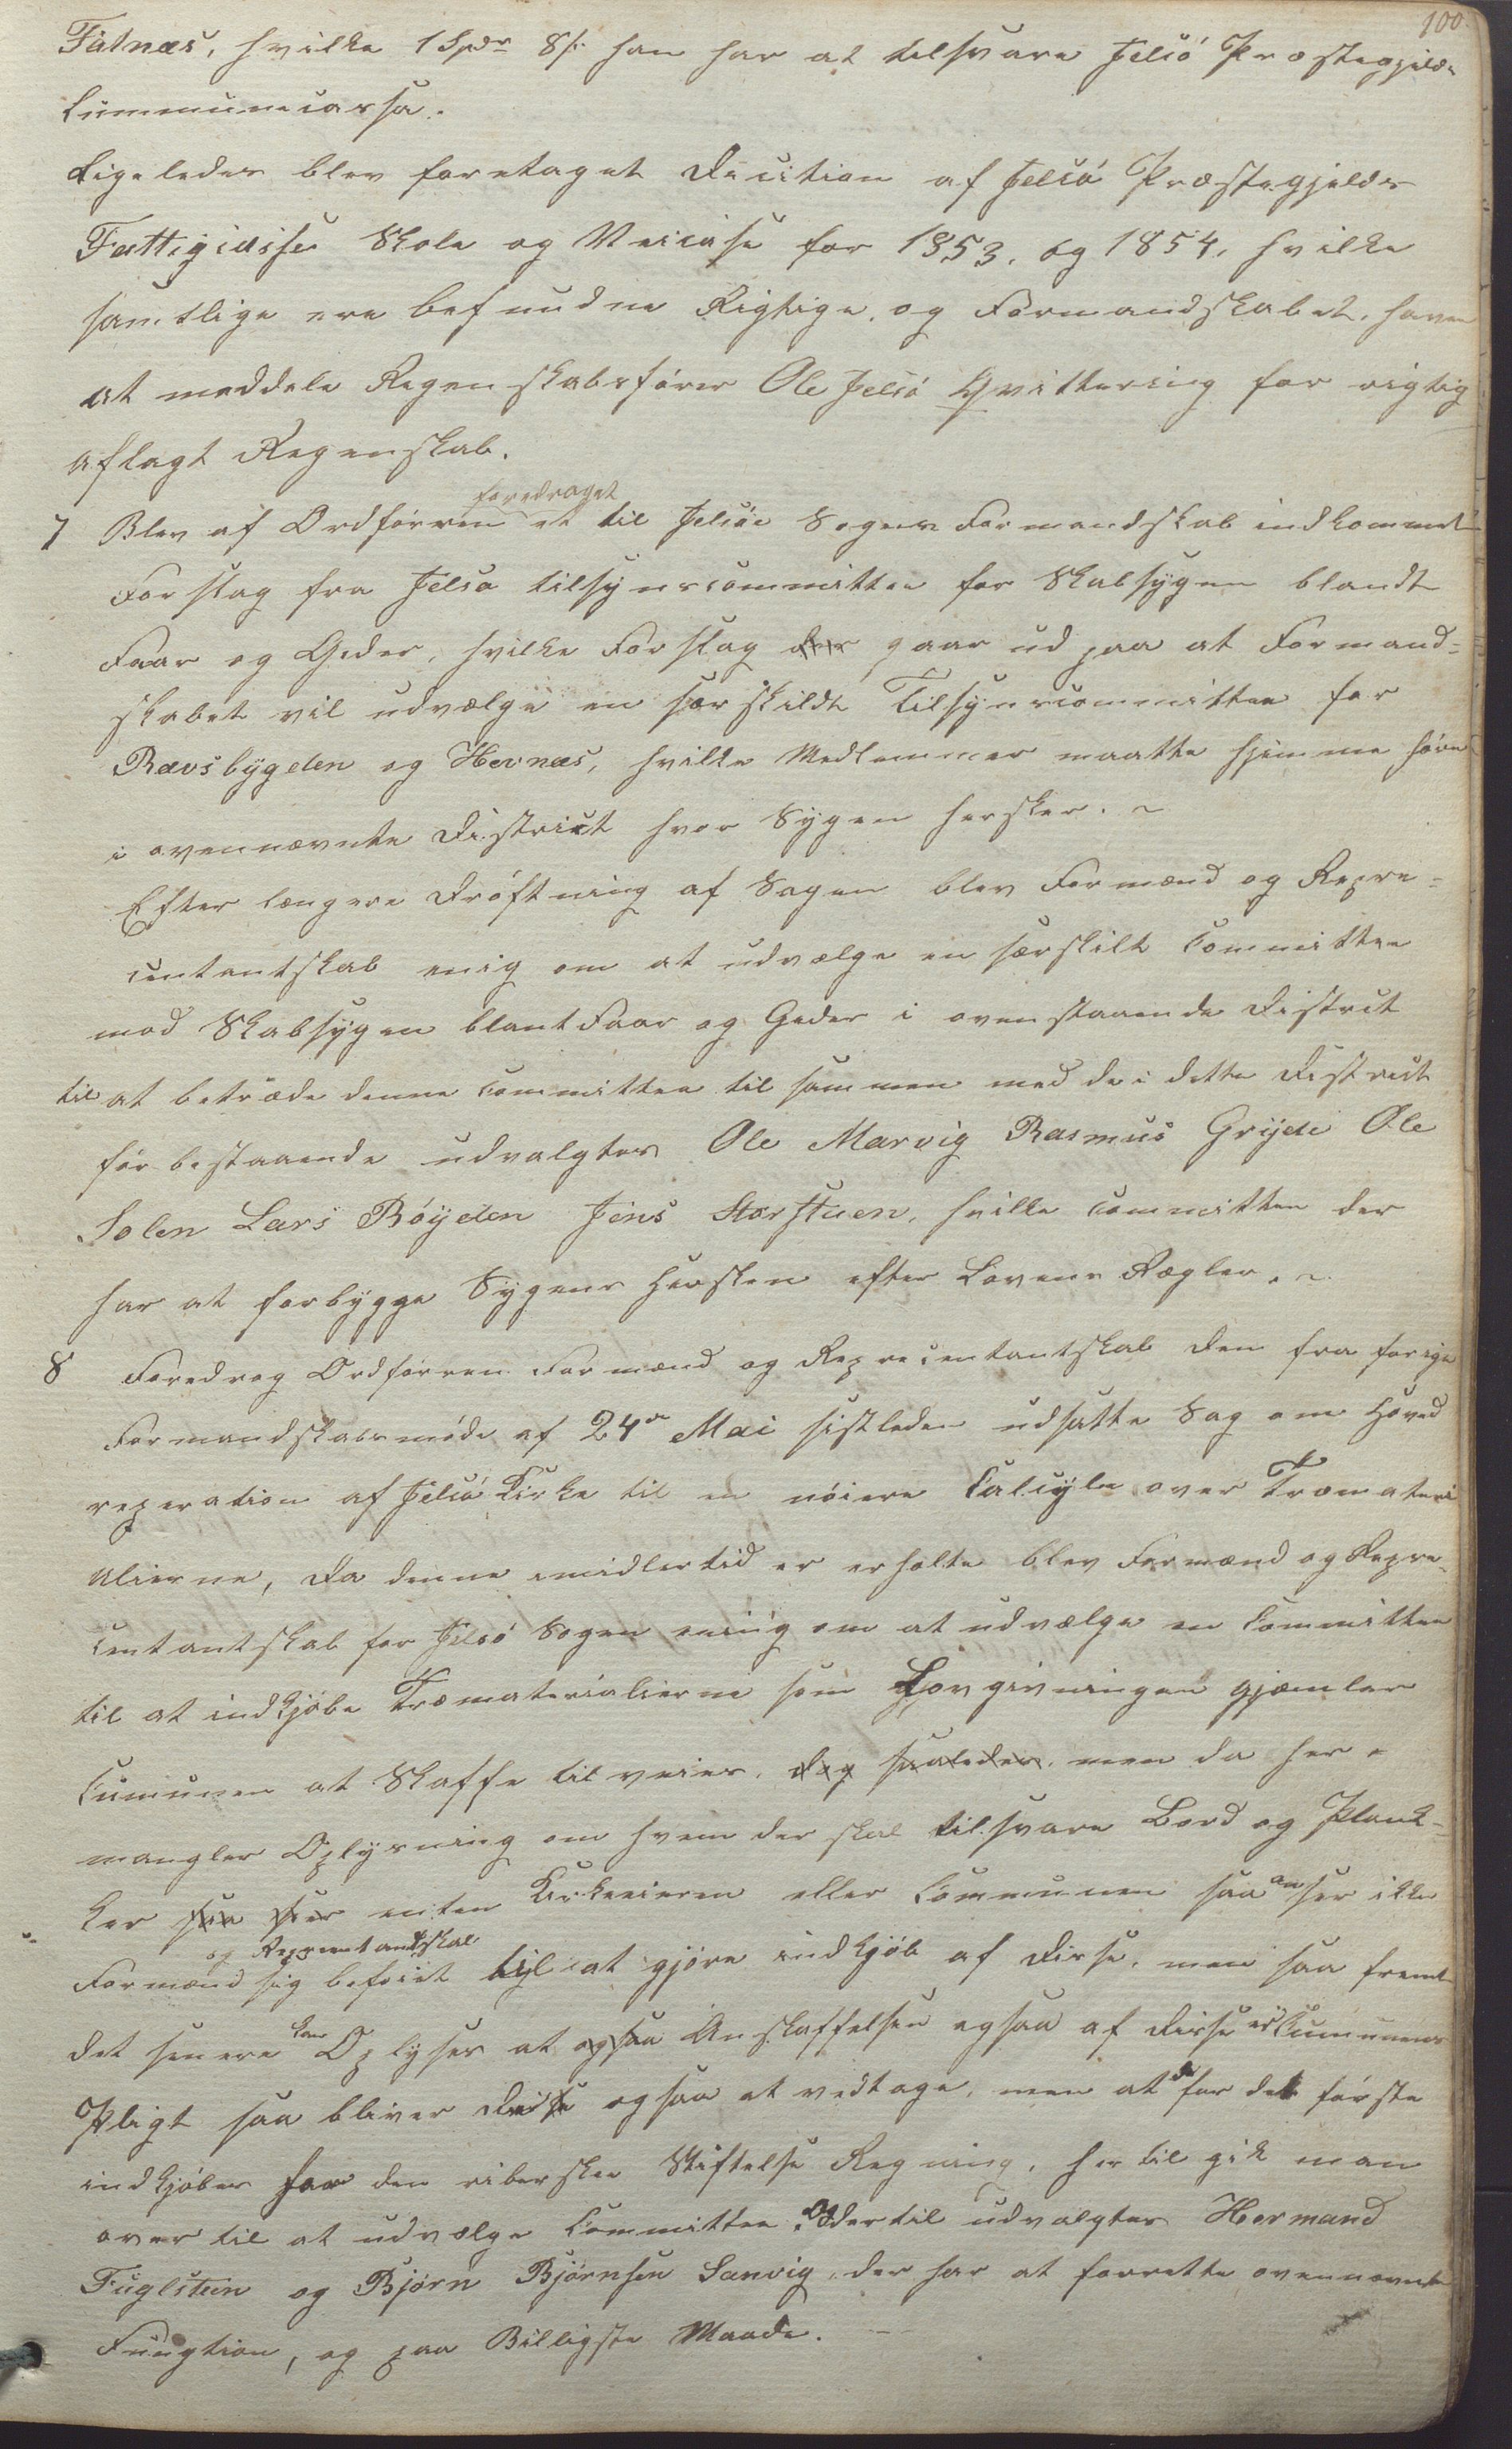 100.
Fatnæs, hvilke 1 Spdr 8 s: han har at tilsvare Jelsø Præstegjelds
Communecassa.
Ligeledes blev foretaget Decition af Jelsø Præstegjelds
Fattigcasse Skole og Veicase for 1853. og 1854, hvilke
samtlige ere befundne Rigtige, og Formandskabet, haver
at meddele Regenskabsfører Ole Jelsø Qvittering for rigtig
aflagt Regenskab.
7 Blev af Ordføreren foredraget et til Jelsøe Sogns Formandskab indkommet
Forslag fra Jelsø tilsynscommittee for Skabsygen blandt
Faar og Geder, hvilke Forslag der gaar ud paa at Formand=
skabet vil udvælge en særskildt Tilsynscommittee for
Rævsbygden og Hevnæs, hvilke Medlemmer maatte hjemme høre
i ovennævnte District hvor Sygen hersker. ~
Efter længere Drøftning af Sagen blev Formænd og Repre=
centantskab enig om at udvælge en særskilt Committee
mod Skabsygen blant Faar og Geder i ovenstaaende District
til at betræde denne Committee til sammen med de i dette District
før bestaaende udvalgtes Ole Marvig Rasmus Gryde Ole
Solen Lars Bøyden Jens Storstuen, hvilke Committee der
har at forbygge Sygens Hersken efter Lovens Regler. ~
8 Foredrog Ordføreren Formænd og Reprecentantskab den fra forrige
Formandskabsmøde af 24de Mai sistleden udsatte Sag om Hoved
reperation af Jelsø Kirke til en nøiere Calcyle over Træmateri
alierne, da denne imidlertid er erholte blev Formænd og Repre=
centantskab for Jelsø Sogen eniig om at udvælge en Committee
til at indkjøbe Træmaterialierne som Lovgivningen gjæmler
Cumunen at Skaffe tilveies. dog saaledes, men da her
mangler Oplysning om hvem der skal tilsvare Bord og Plank=
ker saa ser enten Kirkeeieren eller Communen saa anser ikke
Formænd og Reprecentantskab sig beføiet til at gjøre indkjøb af disse, men saa fremt
det senere kan Oplyses at ogsaa Anskaffelsen ogsaa af disse er Cumunens
Pligt saa bliver disse ogsaa at vedtage, men at de for det første
indkjøbes for den riberske Stiftelse Regning, her til gik man
over til at udvælge Committee. Og dertil udvalgtes Hermand
Fuglsteen og Bjørn Bjørnsen Sanvig, der har at forrette ovennævnte
Fungtion, og paa Billigste Maade. —